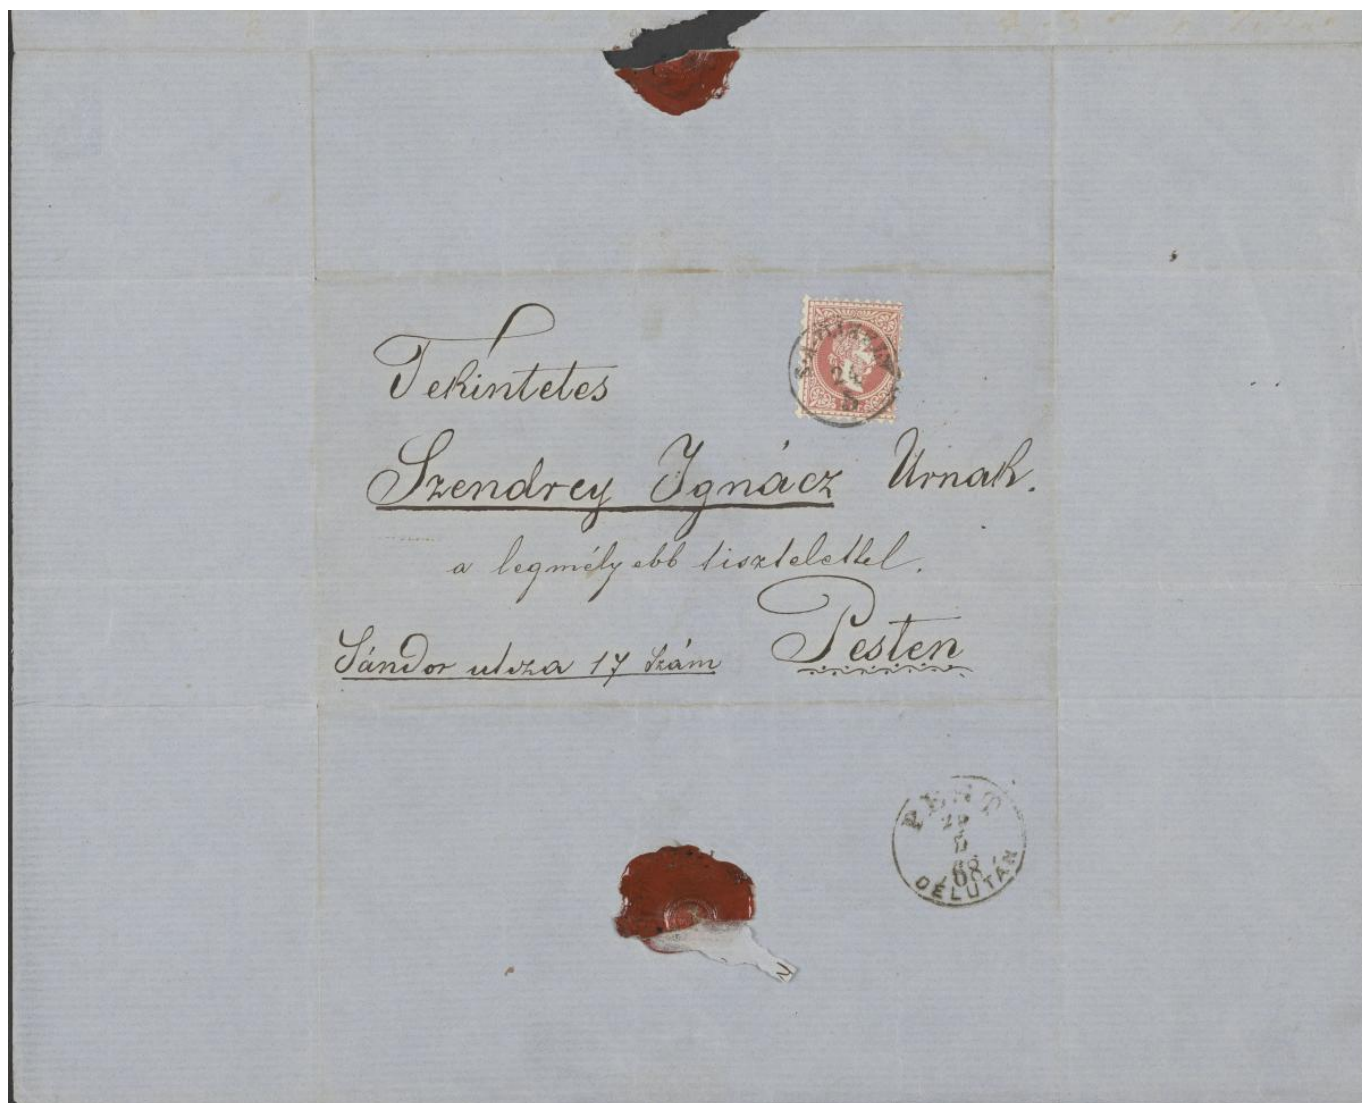 Tekintetes
Szendrey Ignácz Urnak.
a legmélyebb tisztelettel.
Sándor utcza 17 Szám
Pesten
24
5
PEST
5
68
DÉLUTÁN